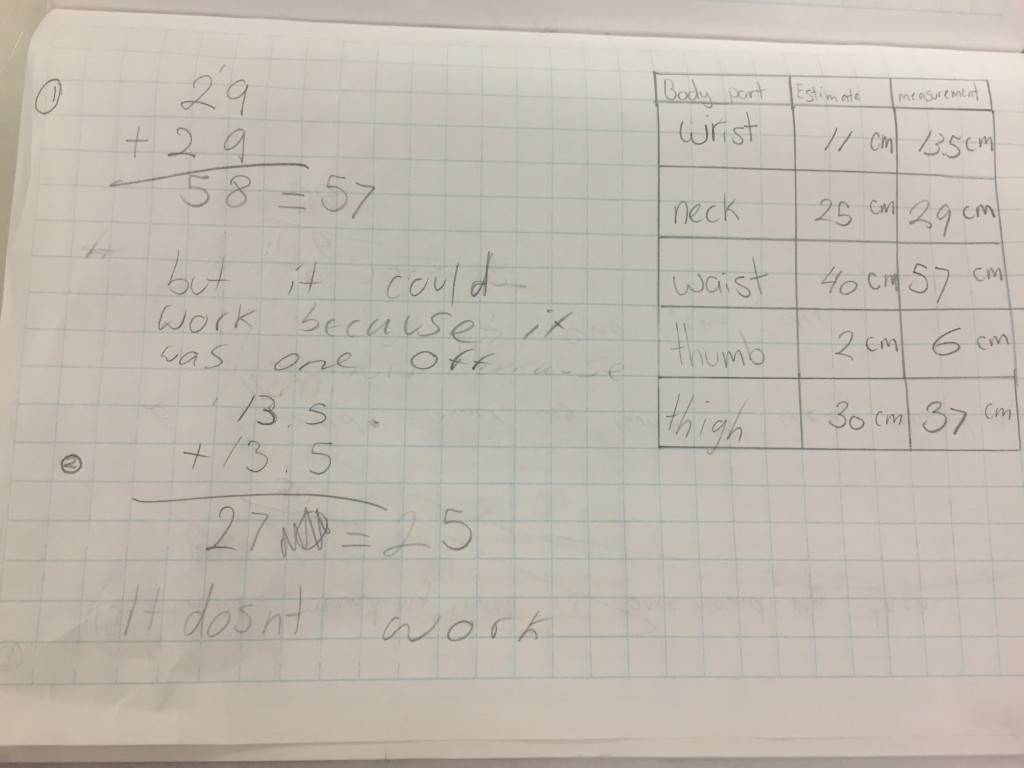 ①
29
+ 29
58 = 57
but it could
work because it
was one off
13.5
② + 13.5
27 = 25
It dosnt work
Body part Estimate measurement
wrist 11 cm 135cm
neck 25 cm 29 cm
waist 40 cm 57 cm
thumb 2 cm 6 cm
thigh 30 cm 37 cm